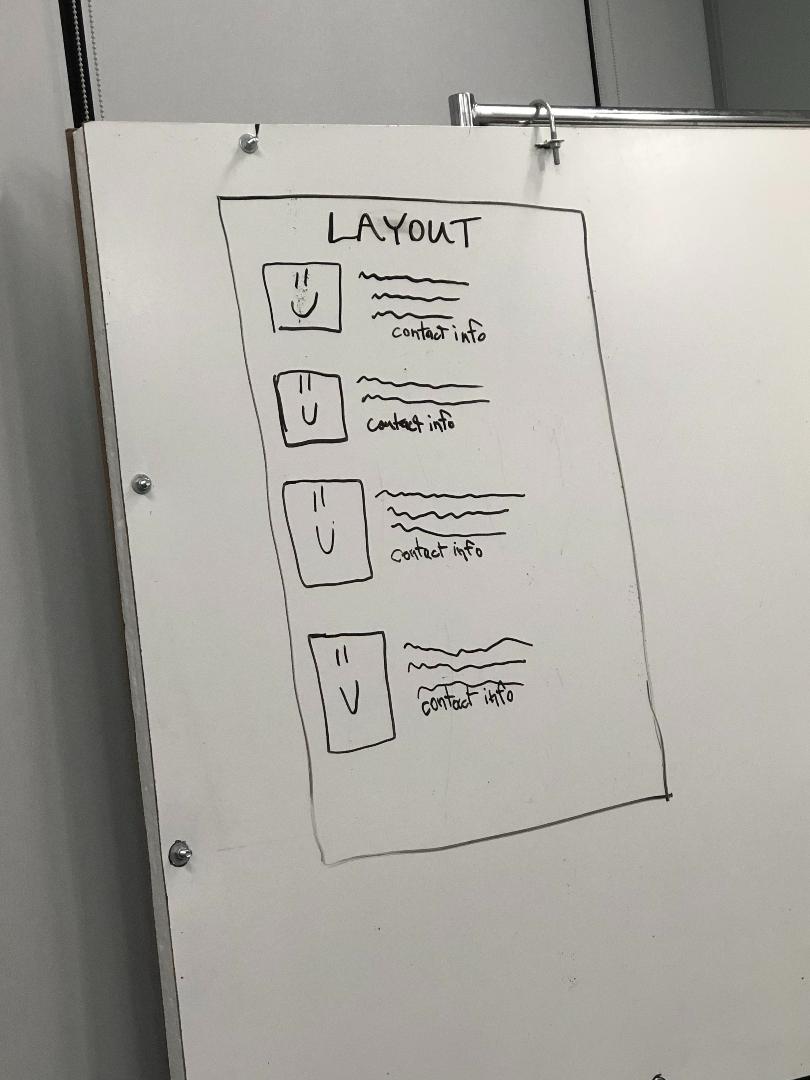 LAYOUT
contact info
contact info
contact info
contact info